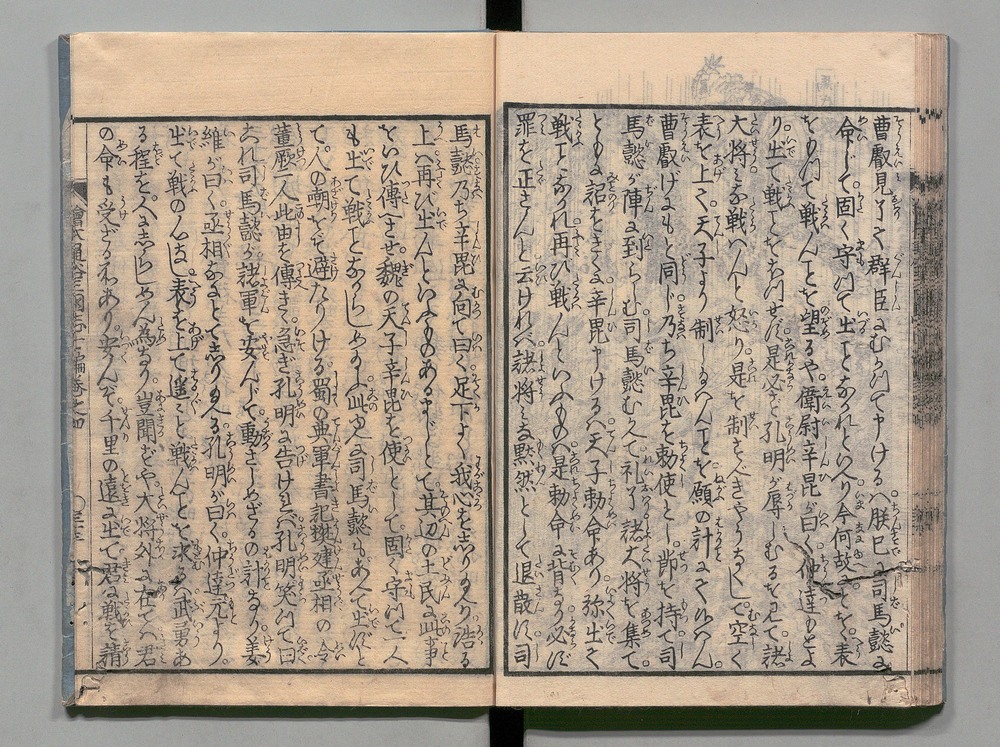 曹叡見了て群臣にむかつて申けるハ朕已に司馬懿に
命じて固く守つて出ことなかれといへり今何故にてを表
をもつて戦んことを望るや衛尉辛毘が曰く仲達もとよ
り出て戦ことをおもハせず是必ず孔明が辱しむるを見て諸
大将ミな戦ハんと怒り是を制すべきやうなし空く
表を上て天子より制し玉ハんことを願の計にて候ハん
曹叡げにもと同じ乃ち辛毘を勅使とし節を持て司
馬懿が陣に到らしむ司馬懿むかへて礼了諸大将を集て
ともに詔をきくに辛毘申けるハ天子勅命あり弥出て
戦ことなかれ再び戦んといふものハ是勅命に背けり必ず
罪を正さんと云けれバ諸将ミな黙然として退散す司
馬懿乃ち辛毘に向て曰く足下よく我心を志り玉へり浩る
上ハ再び出んといふものあるまじとて其辺の土民に此事
をいひ傳へさせ魏の天子辛毘を使として固く守つて一人
も出て戦ことなからしめ玉ふ此ゆへに司馬懿もあへて出ずと
て人の嘲をぞ避たりける蜀の典軍書記樊建丞相の令
董厥二人此由を傳きゝ急ぎ孔明に告けれバ孔明笑つて曰
これ司馬懿が諸軍を安んじて動さしめざるの計なり姜
維が曰く丞相なにとて志り玉へる孔明が曰く仲達元より
出て戦のんはし表を上て遙々と戦んことを求るハ武勇あ
る程を人に志らしめん為なり豈聞ずや大将外に在てハ君
の命も受ざるあり安んぞ千里の遠に出て君に戦を請
繪本通俗三國志七編巻之四